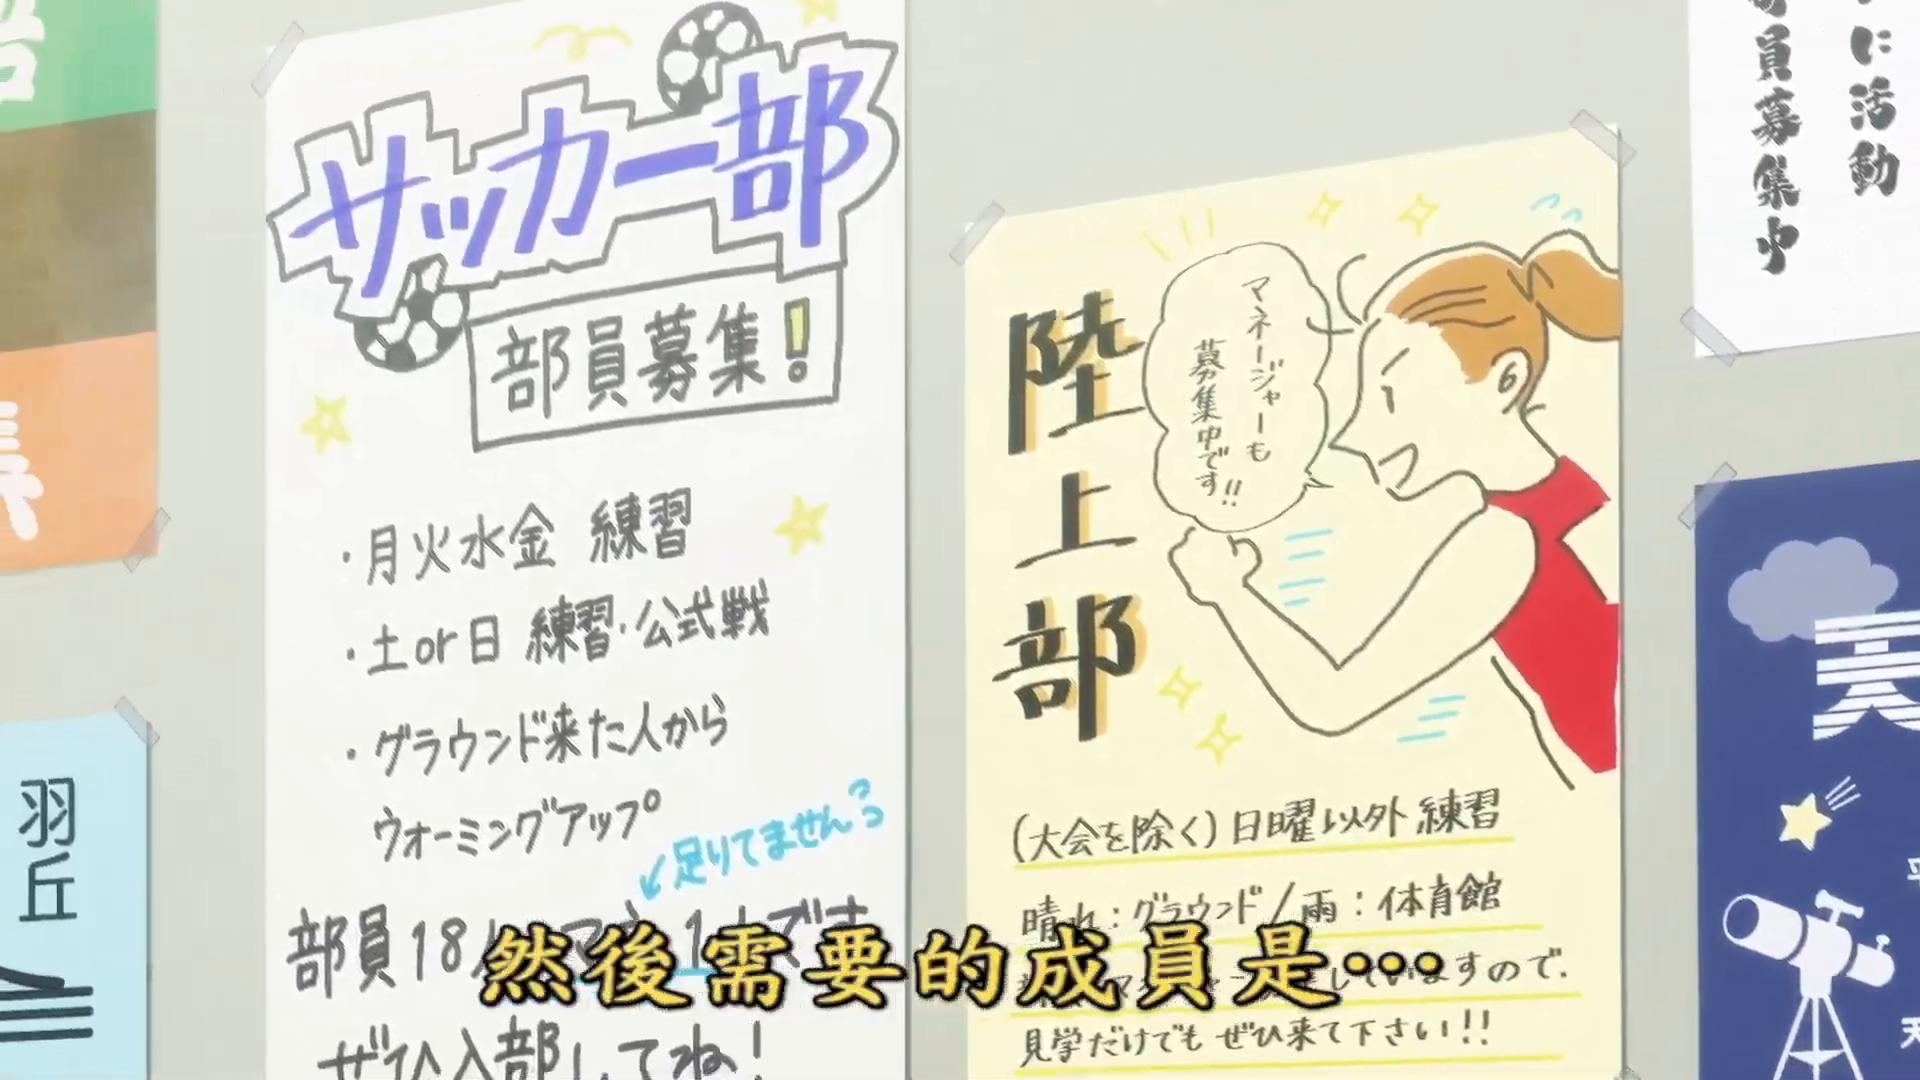 サッカー部
部員募集!
・月火水金 練習
・土or日 練習・公式戦
・グラウンド来た人から
ウォーミングアップ
足りてません
部員18
ぜひ入部してね!
陸上部
マネージャーも
募集中です!!
(大会を除く)日曜以外練習
晴れ:グラウンド/雨:体育館
ますので、
見学だけでもぜひ来て下さい!!
に活動
員募集中
羽丘
天
然後需要的成員是…